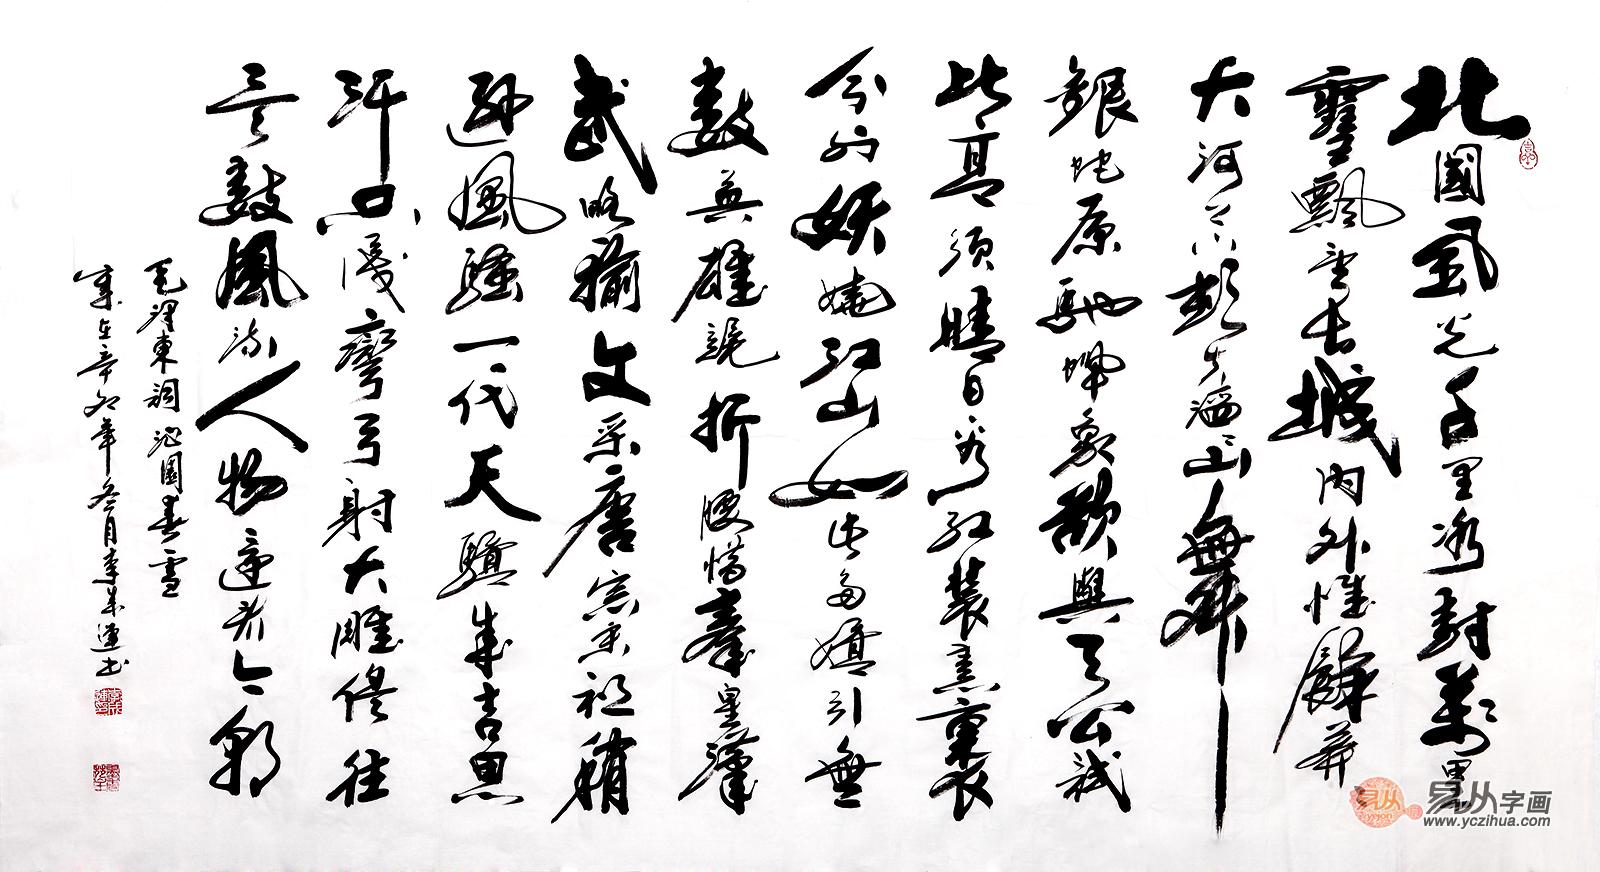 北國風光千里冰封萬里
雪飄望長城內外惟餘莽
大河上下頓失滔々山舞
銀蛇原馳蠟象欲與天公試
比高須晴日看紅裝素裹
分外妖嬈江山如此多嬌引無
數英雄競折腰惜秦皇漢
武略輸文采唐宗宋祖稍
遜風騷一代天驕成吉思
汗只識彎弓射大雕俱往
矣數風流人物還看今朝
毛澤東詞沁園春雪
歲在辛卯年冬月李成連書
易从字画
www.yczihua.com